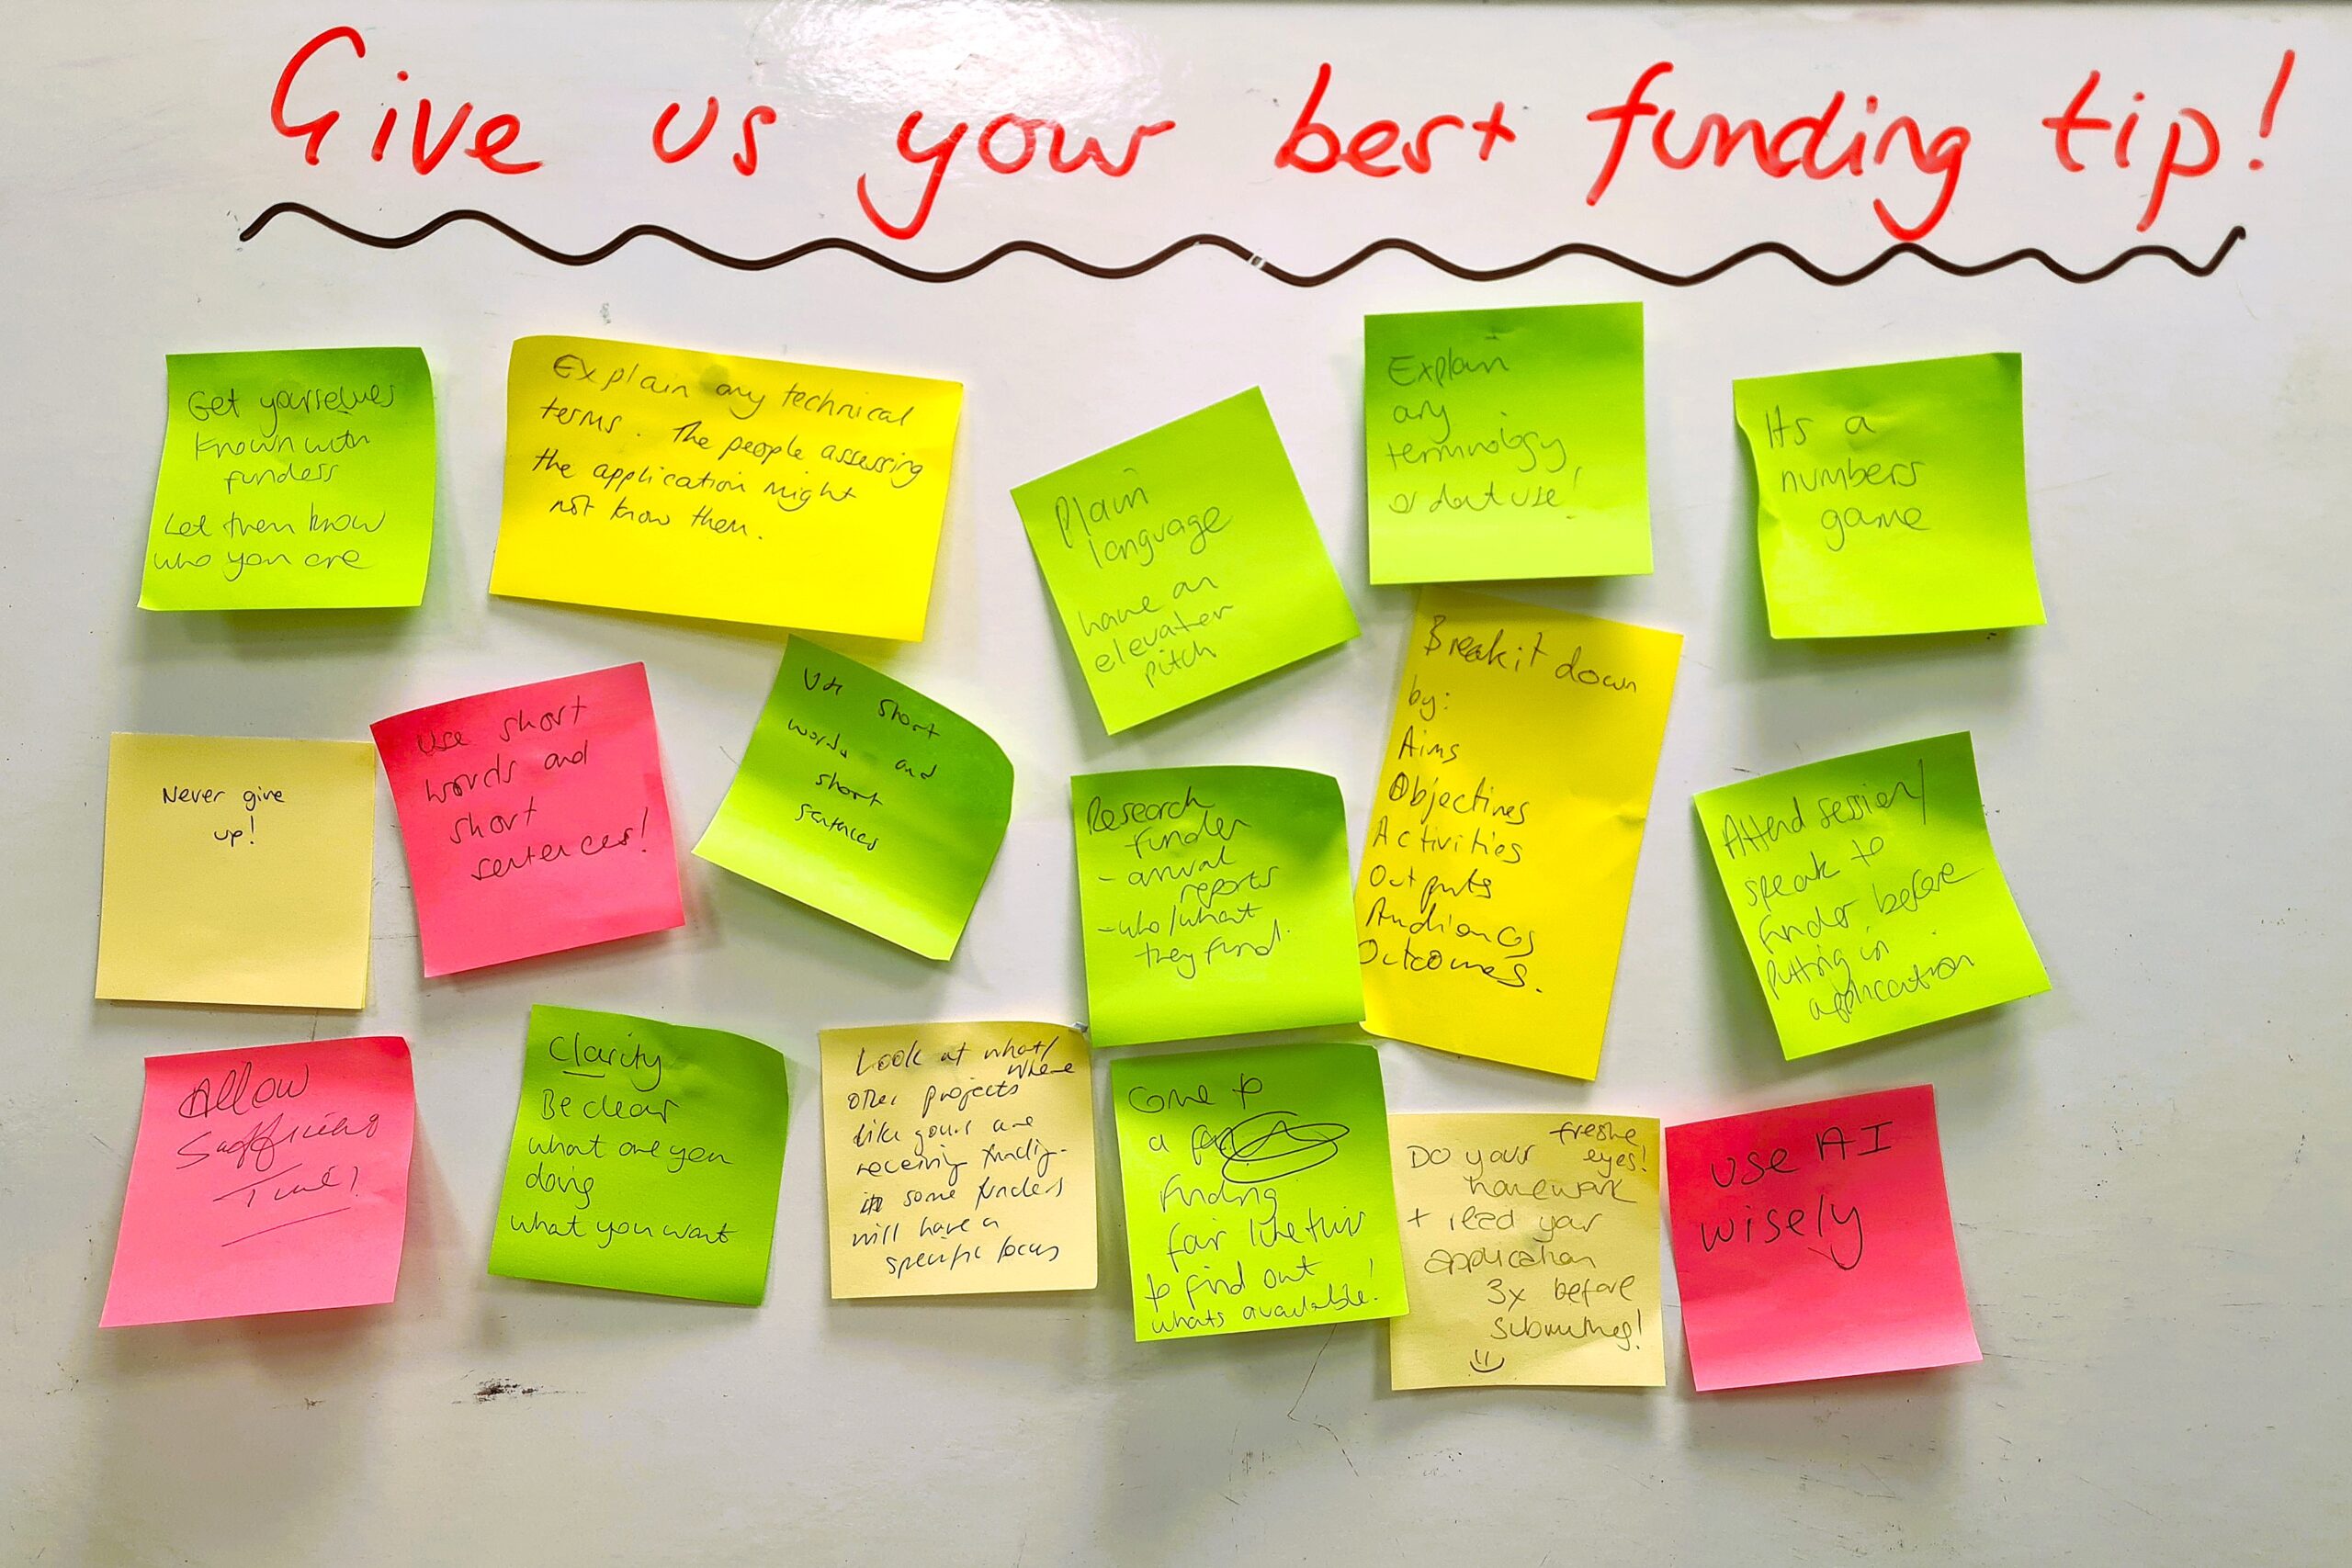 Give us your best funding tip!
Get yourselves
known with
funders
Let them know
who you are
Explain any technical
terms. The people assessing
the application might
not know them.
Plain
language
have an
elevater
pitch
Explain
any
terminology
or dont use!
Its a
numbers
game
Never give
up!
Use short
words and
short
sentences!
Use short
words and
short
sentences
Research
funder
- annual
reports
- who/what
they fund.
Break it down
by:
Aims
Objectives
Activities
Outputs
Audiences
Outcomes.
Attend session/
speak to
funder before
putting in
application
Allow
Time!
Clarity
Be clear
what are you
doing
what you want
Look at what/
where
other projects
like yours are
receiving funding -
some funders
will have a
specific focus
Come to
a
funding
fair like this
to find out
whats available!
freshe
eyes!
Do your
homework
+ read your
application
3x before
submitting!
use AI
wisely